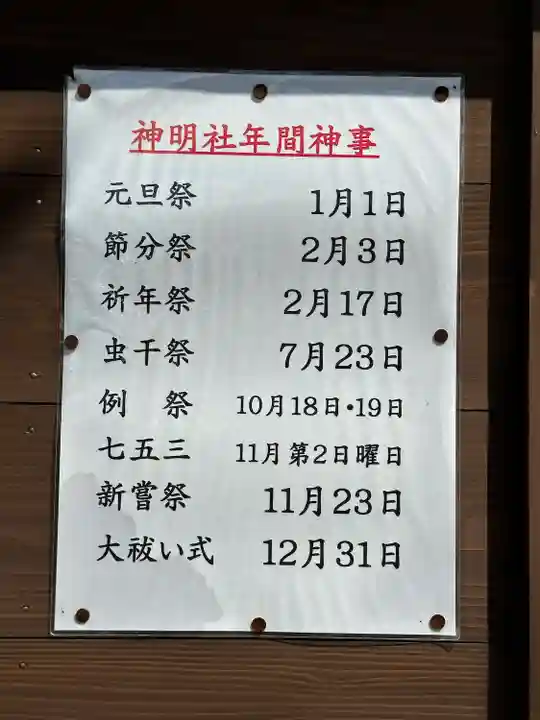 神明社年間神事
元旦祭 1月1日
節分祭 2月3日
祈年祭 2月17日
虫干祭 7月23日
例 祭 10月18日・19日
七五三 11月第2日曜日
新嘗祭 11月23日
大祓い式 12月31日